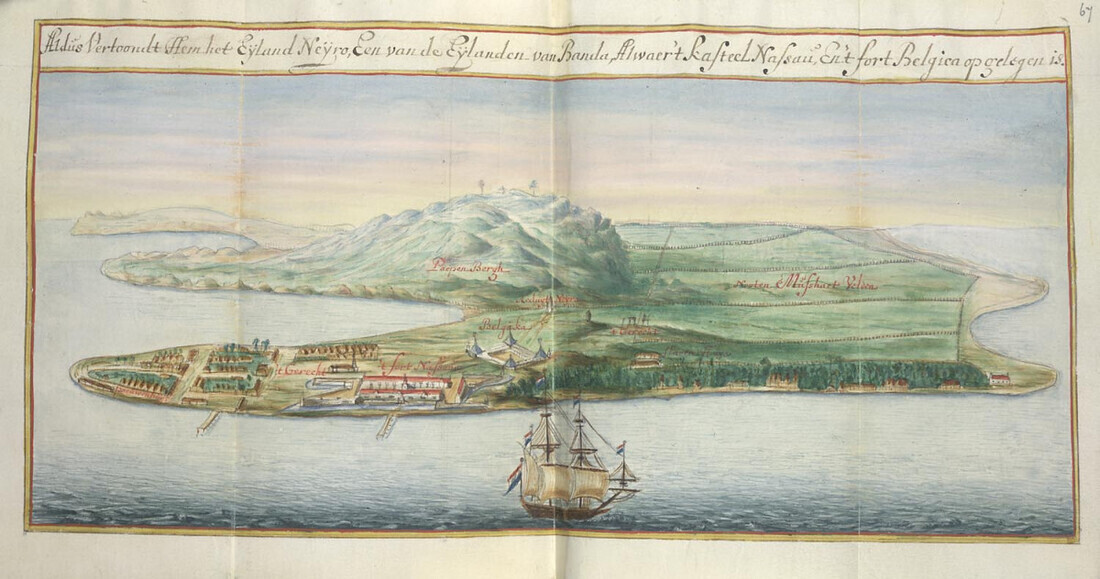 67
Aldus Vertoondt Hem het Eÿland Neÿro, Een van de Eÿlanden van Banda, Alwaer't Kasteel Nassau, En't fort Belgica op gelegen is.
Papen Bergh
Nooten Musschaet Velden
Belgica
't Gerecht
't Gerecht
Fort Nass